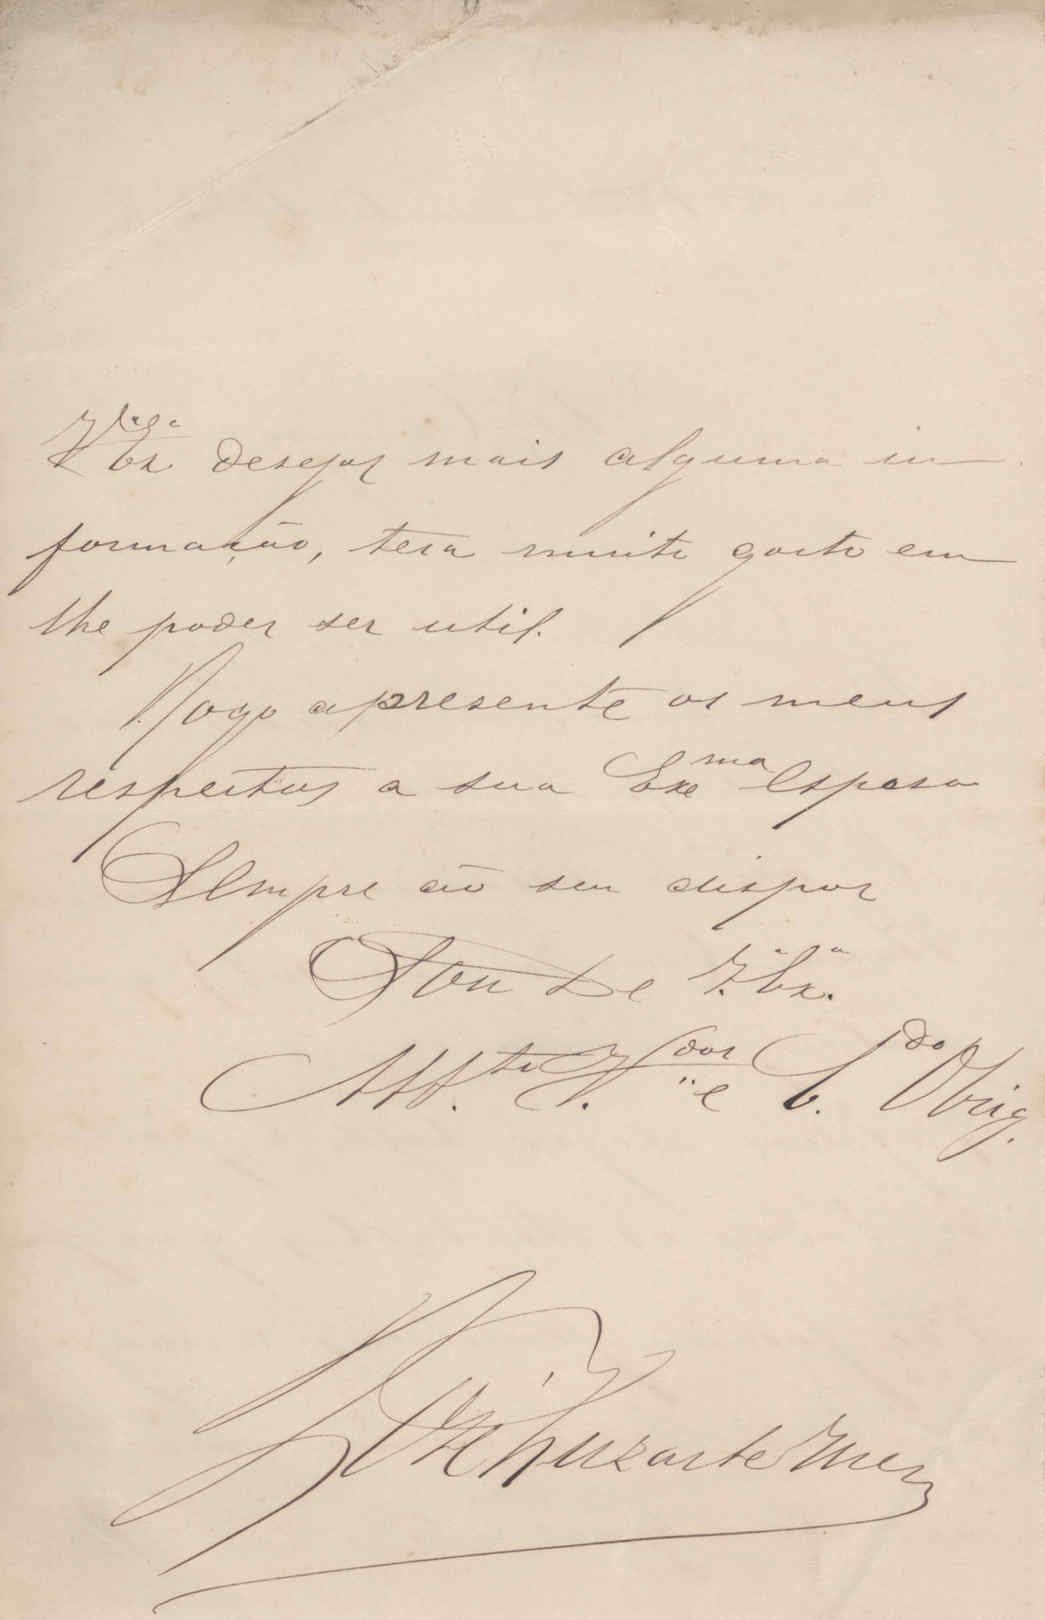 V.ª Ex.ª desejar mais alguma in
formação, tera muito gosto em
lhe poder ser util.
Rogo apresente os meus
respeitos a sua Exc^ma Esposa
Sempre ao seu dispor
Sou de V.ª Ex.ª
Att.^to V.^or e C.^do Obrig.